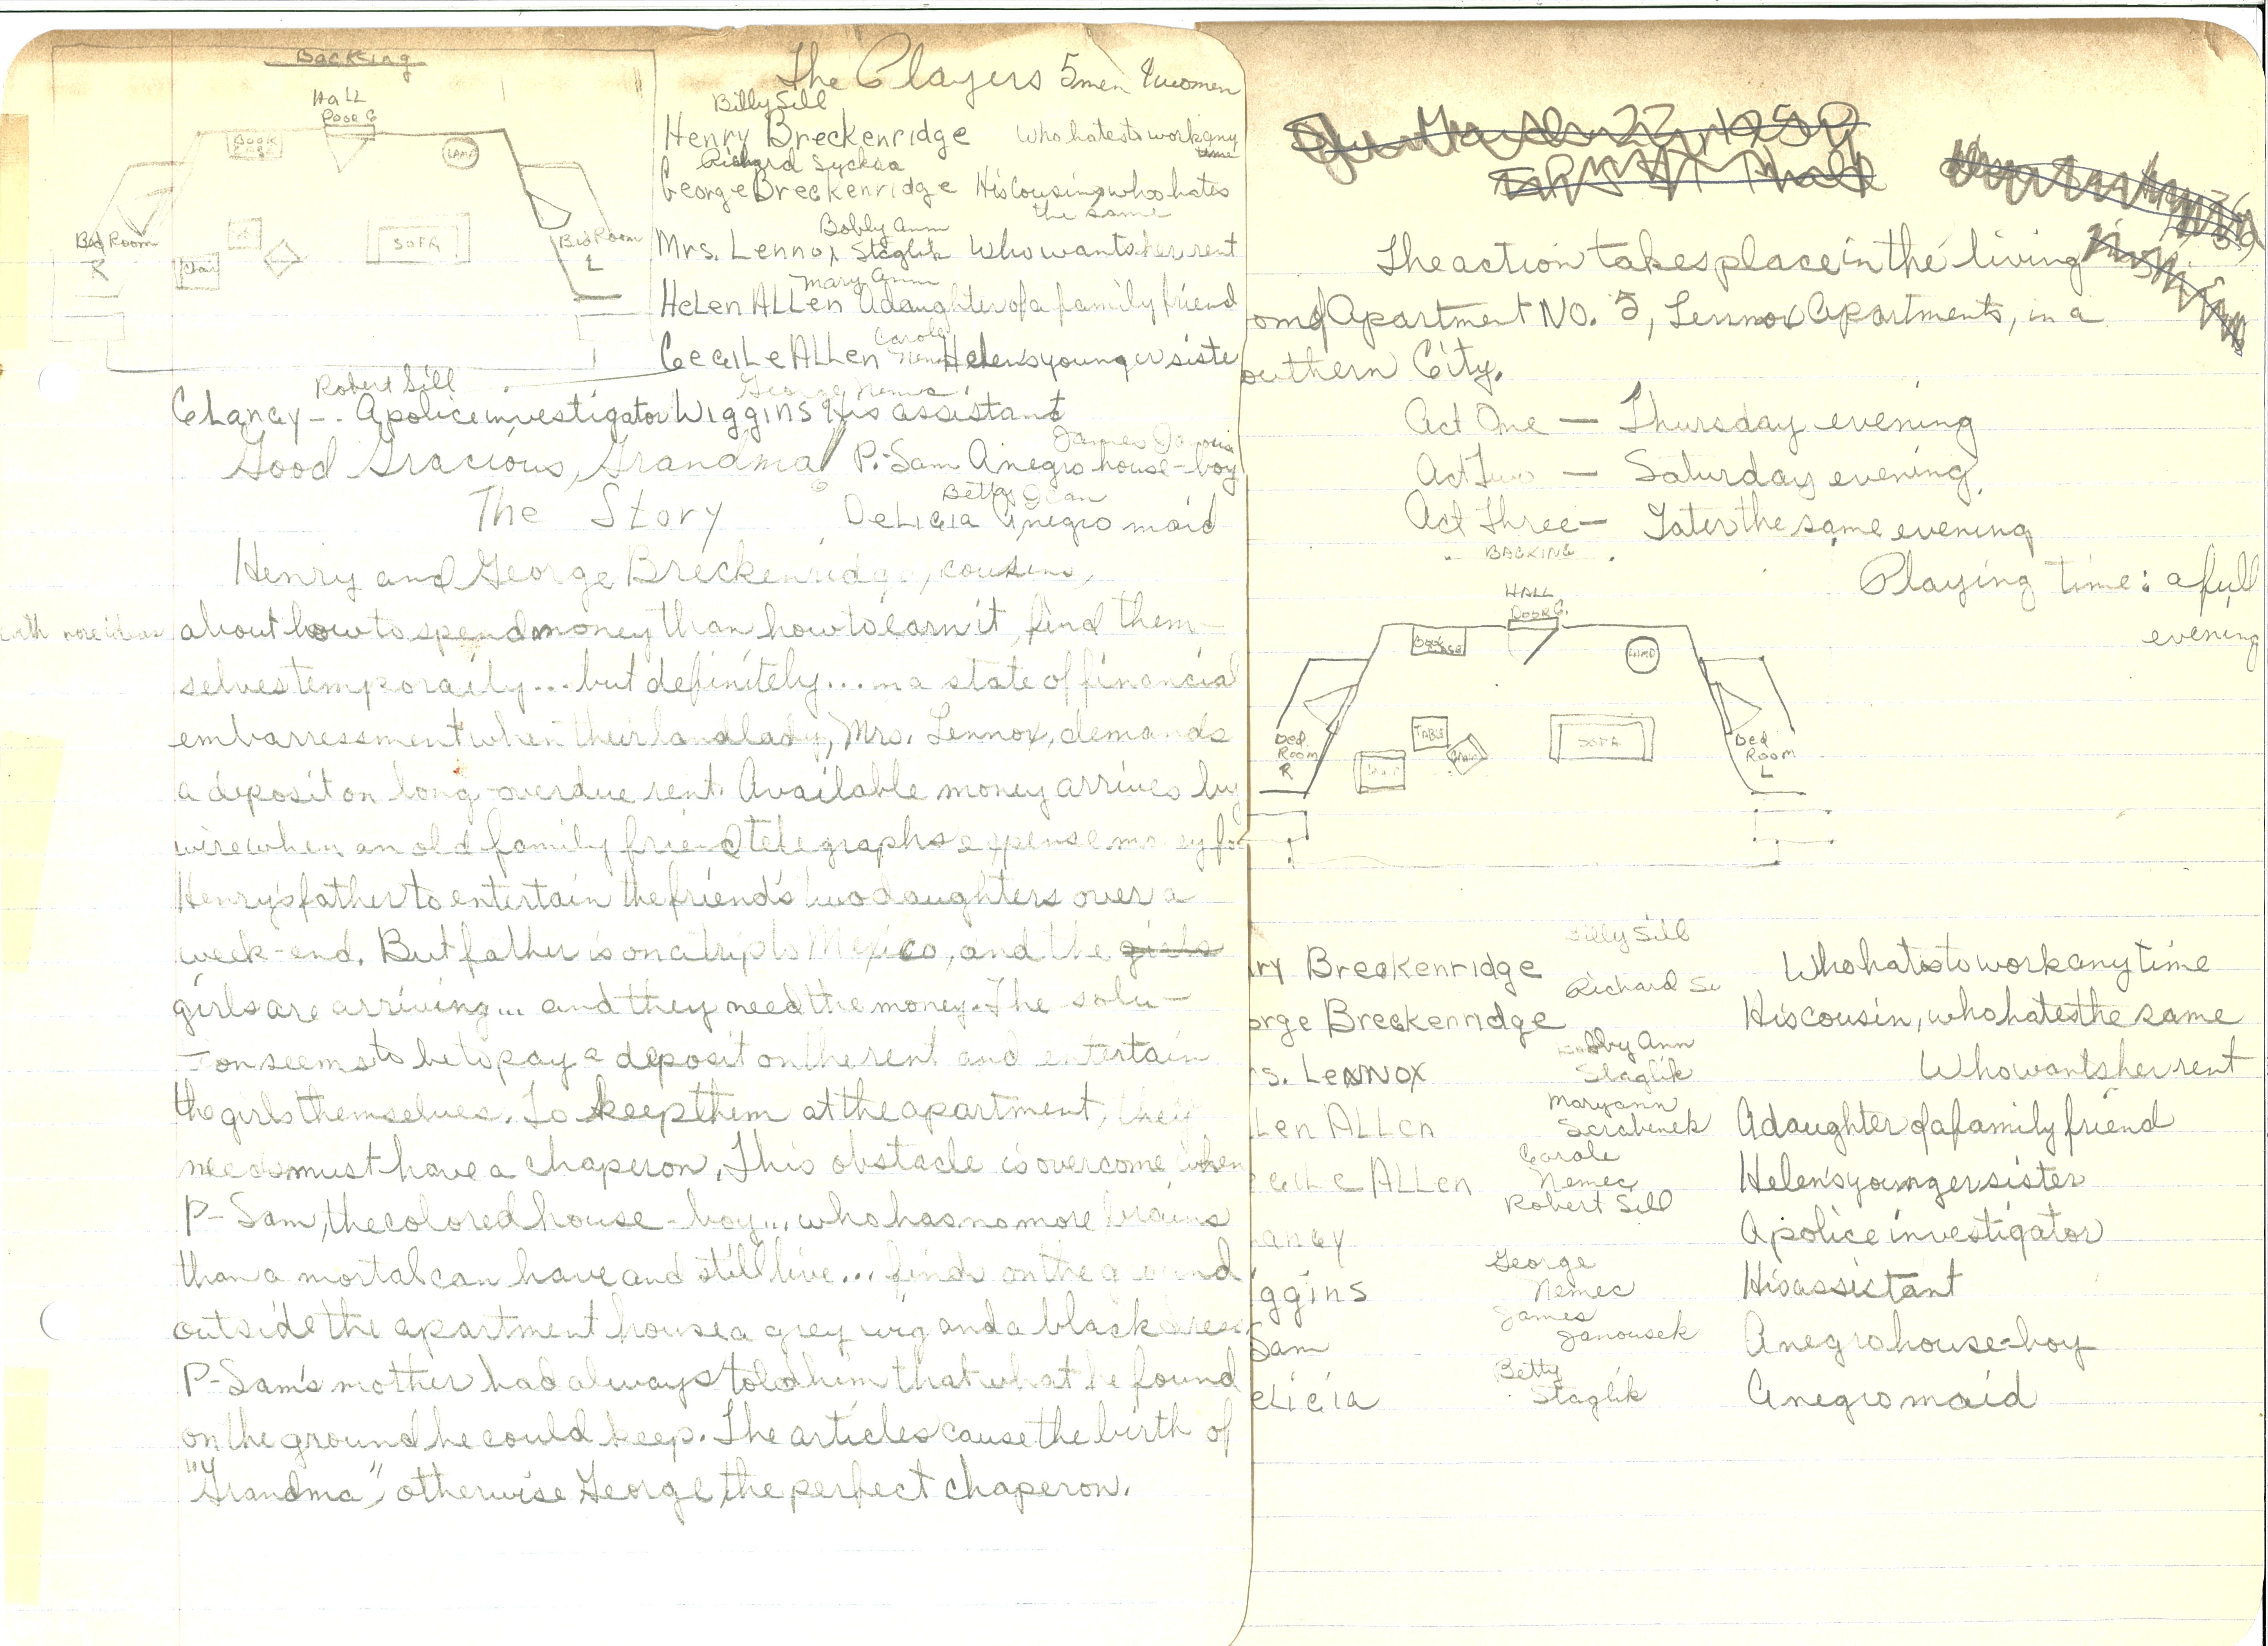 Backing
Hall
Door C
Book
Case
Lamp
Bed Room
R
Chair
SOFA
Bed Room
L
The Players 5 men 4 women
Billy Sill
Henry Breckenridge Who hates to work any
time
Richard Sycksa
George Breckenridge His cousin, who hates
the same
Bobby Ann
Mrs. Lennox Staglik Who wants her rent
Mary Ann
Helen Allen A daughter of a family friend
Carole
Cecile Allen Helen's younger siste
Robert Sill George Nemec
Clancy -- A police investigator Wiggins His assistant
James
Good Gracious, Grandma! P.-Sam A negro house-boy
Betty Jean
The Story Delicia A negro maid
Henry and George Breckenridge, cousins,
with more ideas about how to spend money than how to earn it, find them-
selves temporarily... but definitely... in a state of financial
embarressment when their landlady, Mrs. Lennox, demands
a deposit on long-overdue rent. Available money arrives by
wire when an old family friend telegraphs expense money for
Henry's father to entertain the friend's two daughters over a
week-end. But father is on a trip to Mexico, and the girls
girls are arriving... and they need the money. The solu-
on seems to be to pay a deposit on the rent and entertain
the girls themselves. To keep them at the apartment, they
needs must have a chaperon. This obstacle is overcome when
P-Sam, the colored house-boy... who has no more brains
than a mortal can have and still live... finds on the ground
outside the apartment house a grey wig and a black dress.
P-Sam's mother had always told him that what he found
on the ground he could keep. The articles cause the birth of
"Grandma", otherwise George, the perfect chaperon.
Sun March 22, 1959
The action takes place in the living
om of Apartment No. 5, Lennox Apartments, in a
outhern City.
Act One — Thursday evening
Act Two — Saturday evening.
Act Three — Later the same evening
Playing time: a full
evening
BACKING
HALL
DOOR C.
Book
Case
LAMP
Bed
Room
R
TABLE
Chair
Chair
SOFA
Bed
Room
L
Billy Sill
ry Breckenridge Who hates to work any time
Richard Sy
orge Breckenridge His cousin, who hates the same
Bobby Ann
s. Lennox Staglik Who wants her rent
Maryann
Len Allen A daughter of a family friend
Carole
ecile Allen Nemec Helen's younger sister
Robert Sill
ancy A police investigator
George
ggins Nemec His assistant
James
Sam Janousek A negro house-boy
Betty
elicia Staglik A negro maid